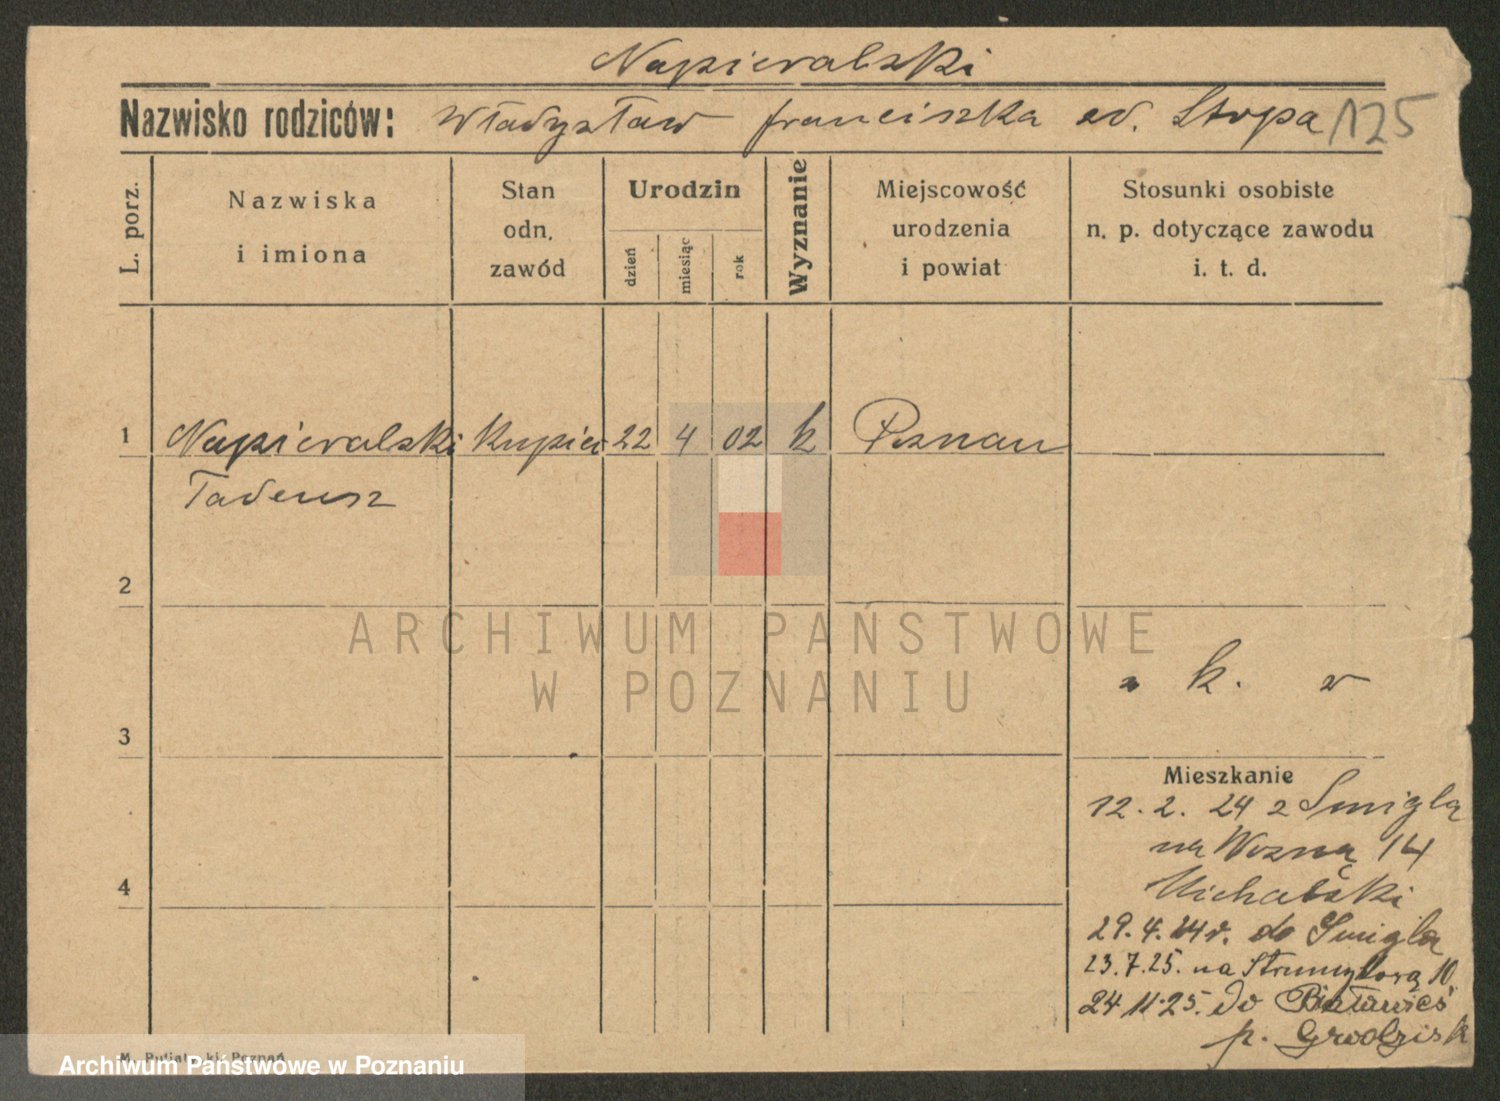 Napieralski
Nazwisko rodziców: Władysław Franciszka od. Stopa 125
L. porz.
Nazwiska
i imiona
Stan
odn.
zawód
Urodzin
dzień
miesiąc
rok
Wyznanie
Miejscowość
urodzenia
i powiat
Stosunki osobiste
n. p. dotyczące zawodu
i. t. d.
1 Napieralski Kupiec 22 4 02 k Poznan
Tadeusz
2
ARCHIWUM PAŃSTWOWE
W POZNANIU
k.
3
Mieszkanie
12. 2. 24 z Smigla
na Wozną 14
Michalski
4
29. 4. 24 r. do Smigla
23. 7. 25. na Strumykową 10.
24 11 25. do Białawieś
p. Grodzisk
Archiwum Państwowe w Poznaniu